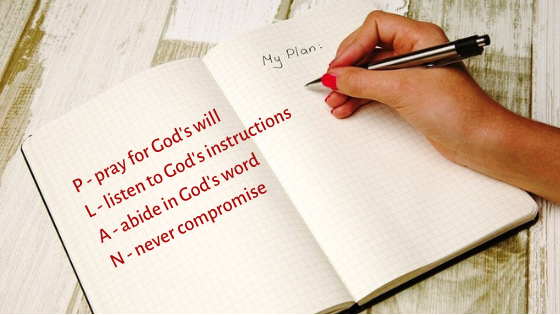 My Plan:
P - pray for God's will
L - listen to God's instructions
A - abide in God's word
N - never compromise